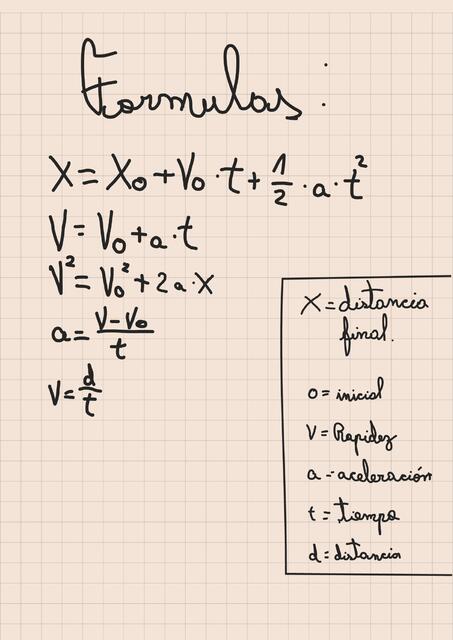 Formulas :
X = X₀ + V₀ · t + 1/2 · a · t²
V = V₀ + a · t
V² = V₀² + 2a · X
a = V - V₀ / t
V = d / t
X = distancia
final.
o = inicial
V = Rapidez
a = aceleración
t = tiempo
d = distancia